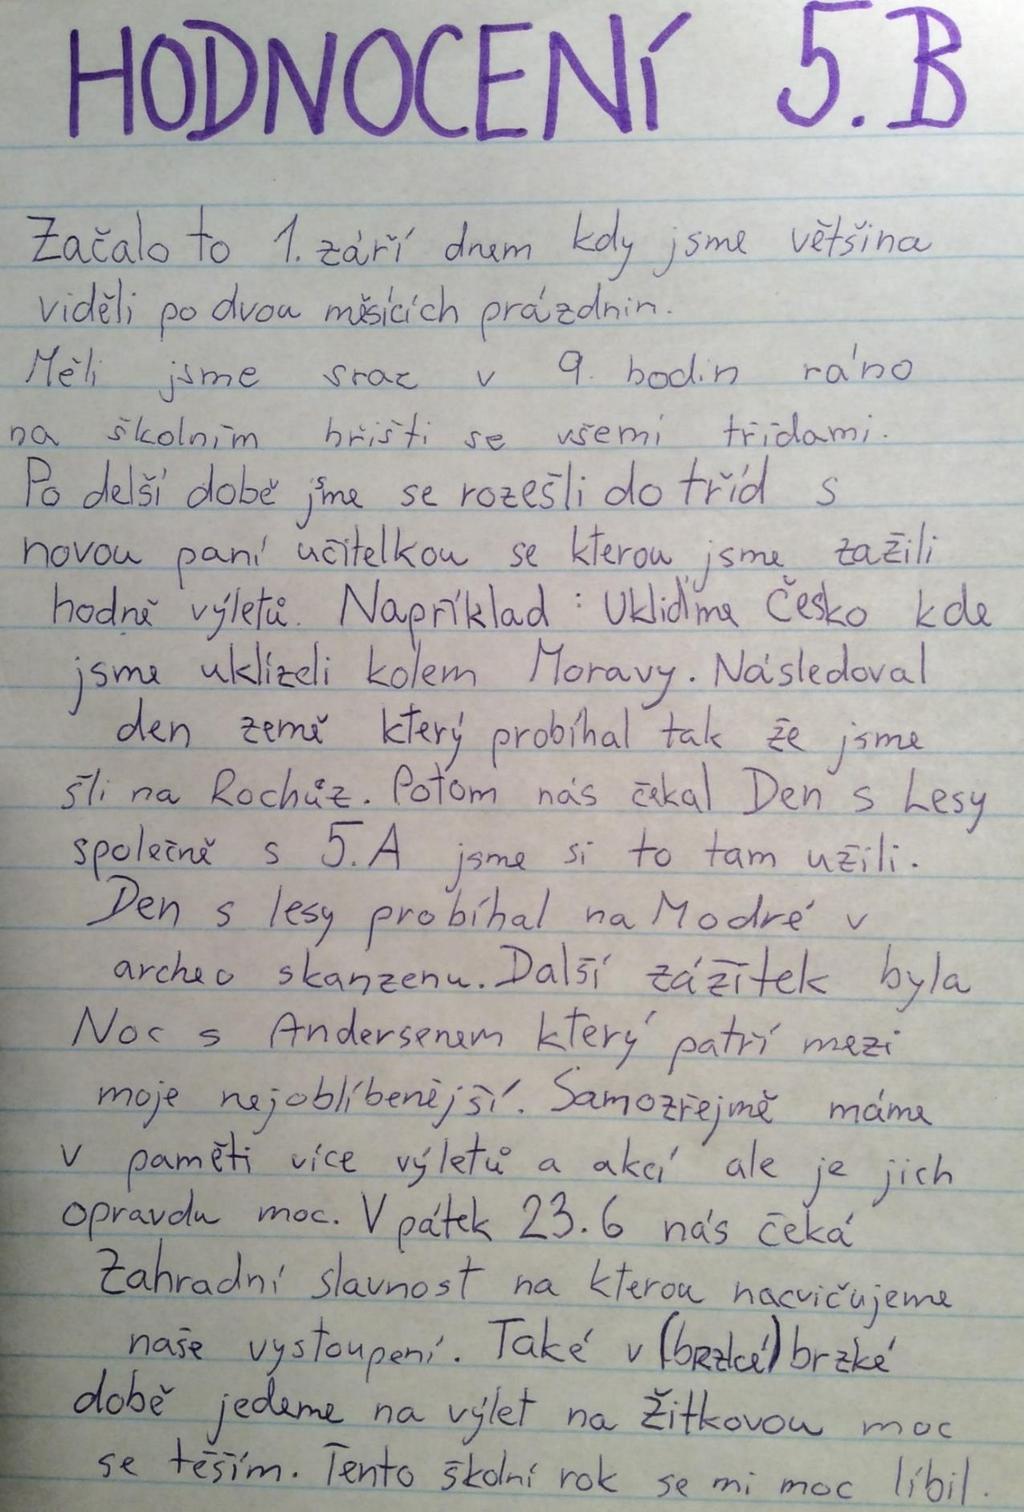 HODNOCENÍ 5.B
Začalo to 1. září dnem kdy jsme většina
viděli po dvou měsících prázdnin.
Měli jsme sraz v 9. hodin ráno
na školním hřišti se všemi třídami.
Po delší době jsme se rozešli do tříd s
novou paní učitelkou se kterou jsme zažili
hodně výletů. Například : Uklidíme Česko kde
jsme uklízeli kolem Moravy. Následoval
den země který probíhal tak že jsme
šli na Rochůz. Potom nás čekal Den s Lesy
společně s 5.A jsme si to tam užili.
Den s lesy probíhal na Modré v
archeo skanzenu. Další zážitek byla
Noc s Andersenem který patří mezi
moje nejoblíbenější. Samozřejmě máme
v paměti více výletů a akcí ale je jich
opravdu moc. V pátek 23.6 nás čeká
Zahradní slavnost na kterou nacvičujeme
naše vystoupení. Také v (brzké) brzké
době jedeme na výlet na Žitkovou moc
se těším. Tento školní rok se mi moc líbil.